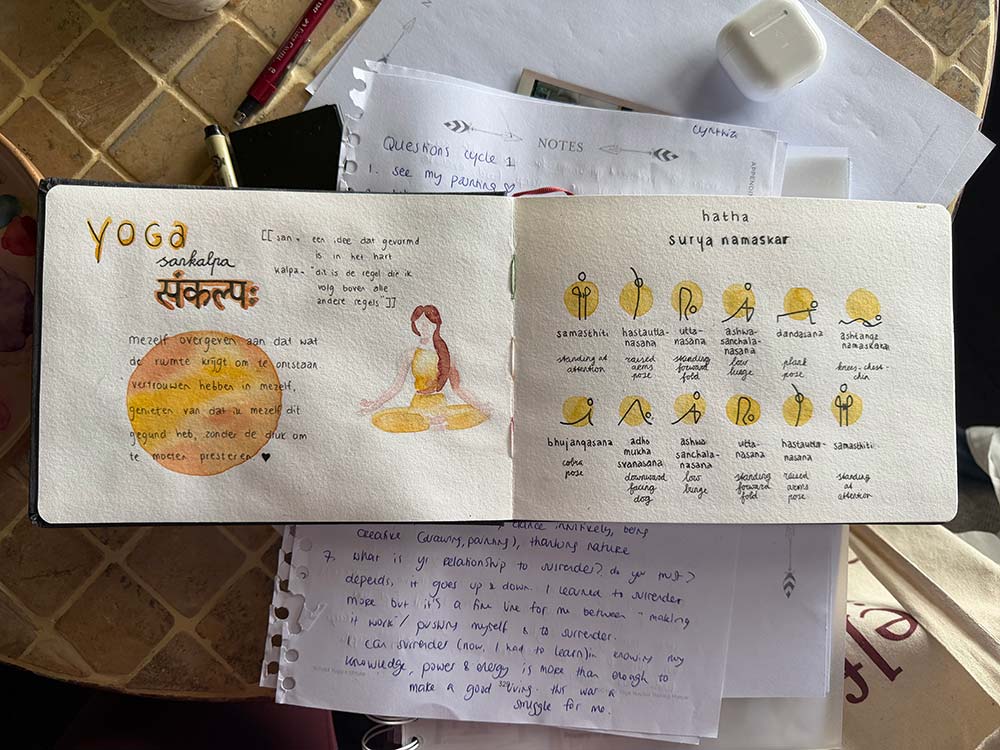 Cynthia
Questions cycle 1
NOTES
1. see my painting ♡
YOGA
sankalpa
संकल्पः
[[san = een idee dat gevormd
is in het hart
kalpa = "dit is de regel die ik
volg boven alle
andere regels"]]
mezelf overgeven aan dat wat
de ruimte krijgt om te ontstaan.
vertrouwen hebben in mezelf,
genieten van dat ik mezelf dit
gegund heb, zonder de druk om
te moeten presteren ♥
hatha
surya namaskar
samasthiti
standing at
attention
hastautta-
nasana
raised
arms
pose
utta-
nasana
standing
forward
fold
ashwa-
sanchala-
nasana
low
lunge
dandasana
plank
pose
ashtanga
namaskara
knees-chest-
chin
bhujangasana
cobra
pose
adho
mukha
svanasana
downward
facing
dog
ashwa
sanchala-
nasana
low
lunge
utta-
nasana
standing
forward
fold
hastautta-
nasana
raised
arms
pose
samasthiti
standing
at
attention
dance intuitively, being
creative (drawing, painting), thanking nature
7. what is yr relationship to surrender? do you trust?
depends, it goes up & down. I learned to surrender
more but it's a fine line for me between "making
it work"/ pushing myself & to surrender.
I can surrender (now, I had to learn) in knowing my
knowledge, power & energy is more than enough to
make a good living. this was a
struggle for me.